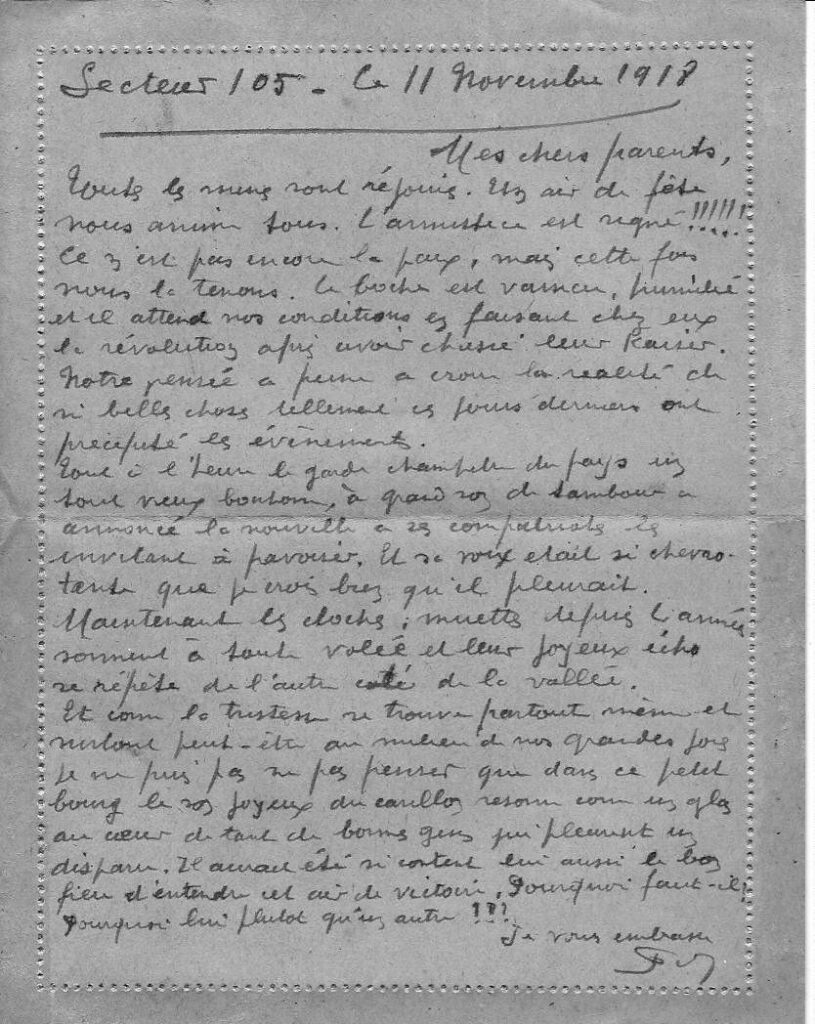 Secteur 105 - Le 11 Novembre 1918
Mes chers parents,
Toutes les mines sont réjouis. Un air de fête
nous anime tous. L'armistice est signé !!!!!!
Ce n'est pas encore la paix, mais cette fois
nous la tenons. Le boche est vaincu, humilié
et il attend nos conditions en faisant chez eux
la révolution après avoir chassé leur Kaiser.
Notre pensée a peine a croire la realité de
si belles choses tellement ces jours derniers ont
précipité les évènements.
Tout à l'heure le garde champêtre du pays un
tout vieux bonhom, à grand son de tambour a
annoncé la nouvelle a ses compatriotes les
invitant à pavoiser. Et sa voix etait si chevro-
tante que je crois bien qu'il pleurait.
Maintenant les cloches, muettes depuis l'armée
sonnent à toute volée et leur joyeux écho
se répète de l'autre coté de la vallée.
Et come la tristesse se trouve partout même et
surtout peut-être au milieu de nos grandes joies
je ne puis pas ne pas penser que dans ce petit
bourg le son joyeux du carillon resonne com un glas
au cœur de tant de bonnes gens qui pleurent un
disparu. Il aurait été si content lui aussi le bon
fieu d'entendre cet air de victoire. Pourquoi faut-il ?
Pourquoi lui plutot qu'un autre !!?
Je vous embrasse